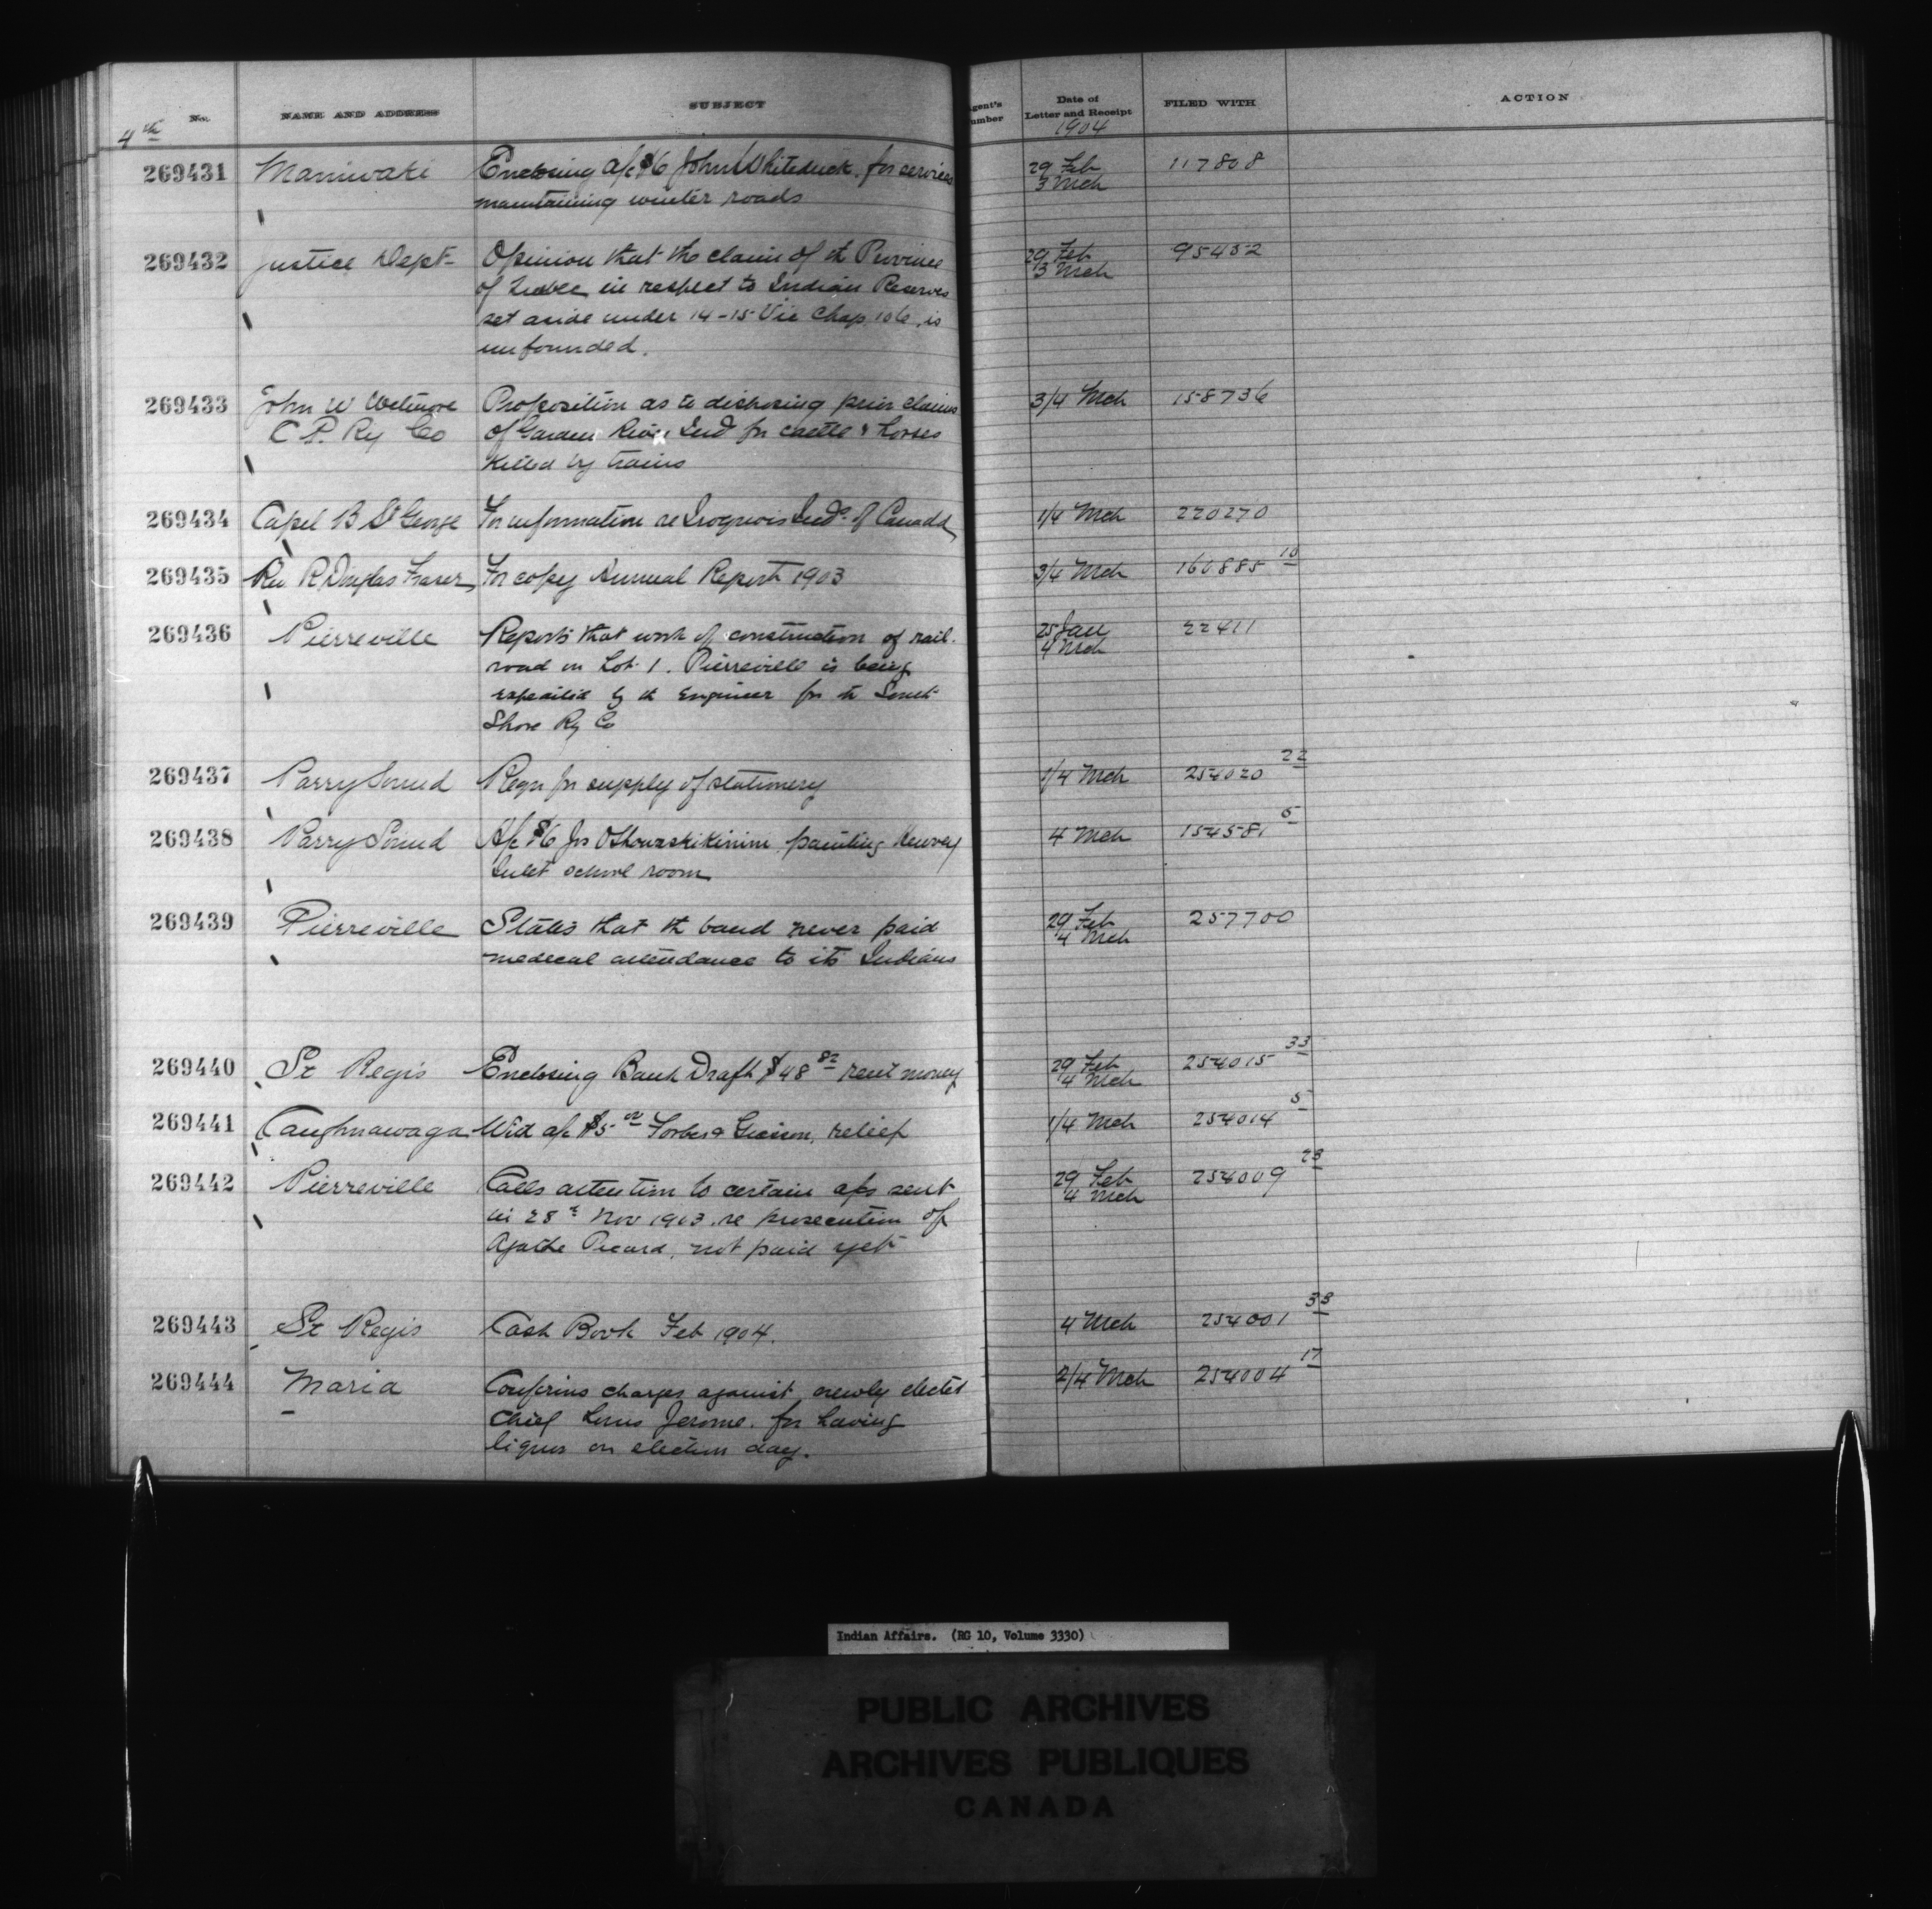 No. NAME AND ADDRESS SUBJECT Agent's Number Date of Letter and Receipt FILED WITH ACTION
4th 1904
269431 Maniwaki Enclosing a/c $6 John Whiteduck. for services 29 Feb 117808
maintaining winter roads 3 Mch
269432 Justice Dept- Opinion that the claim of th Province 29 Feb 95452
of Quebec in respect to Indian Reserves 3 Mch
set aside under 14-15 Vic Chap. 106, is
unfounded.
269433 John W Wetmore Proposition as to disposing prior claims 3/4 Mch 158736
C P. Ry Co of Garden River Ind for cattle & horses
killed by trains
269434 Capel B St George For information re Iroquois Inds. of Canada 1/4 Mch 220270
269435 Rev R. Douglas Fraser For copy Annual Report 1903 3/4 Mch 160885 10
269436 Pierreville Reports that work of construction of rail- 25 Jan 22411
road on Lot 1. Pierreville is being 4 Mch
expedited by th Engineer for th South
Shore Ry Co
269437 Parry Sound Reqn for supply of stationery 1/4 Mch 254020 22
269438 Parry Sound A/c $6 Jos painting Henvey 4 Mch 154581 5
Inlet school room
269439 Pierreville States that th band never paid 29 Feb 257700
medical attendance to its Indians 4 Mch
269440 St Regis Enclosing Bank Draft $48 82 rent money 29 Feb 254015 33
4 Mch
269441 Caughnawaga Wid a/c $5 00 Forbes & relief 1/4 Mch 254014 5
269442 Pierreville Calls attention to certain a/cs sent 29 Feb 254009 23
in 28th Nov 1903. re prosecution of 4 Mch
Agathe Picard, not paid yet
269443 St Regis Cash Book Feb 1904. 4 Mch 254001 33
269444 Maria Confirms charges against newly elected 2/4 Mch 254004 17
Chief Louis Jerome. for having
liquor on election day.
Indian Affairs. (RG 10, Volume 3330)
PUBLIC ARCHIVES
ARCHIVES PUBLIQUES
CANADA